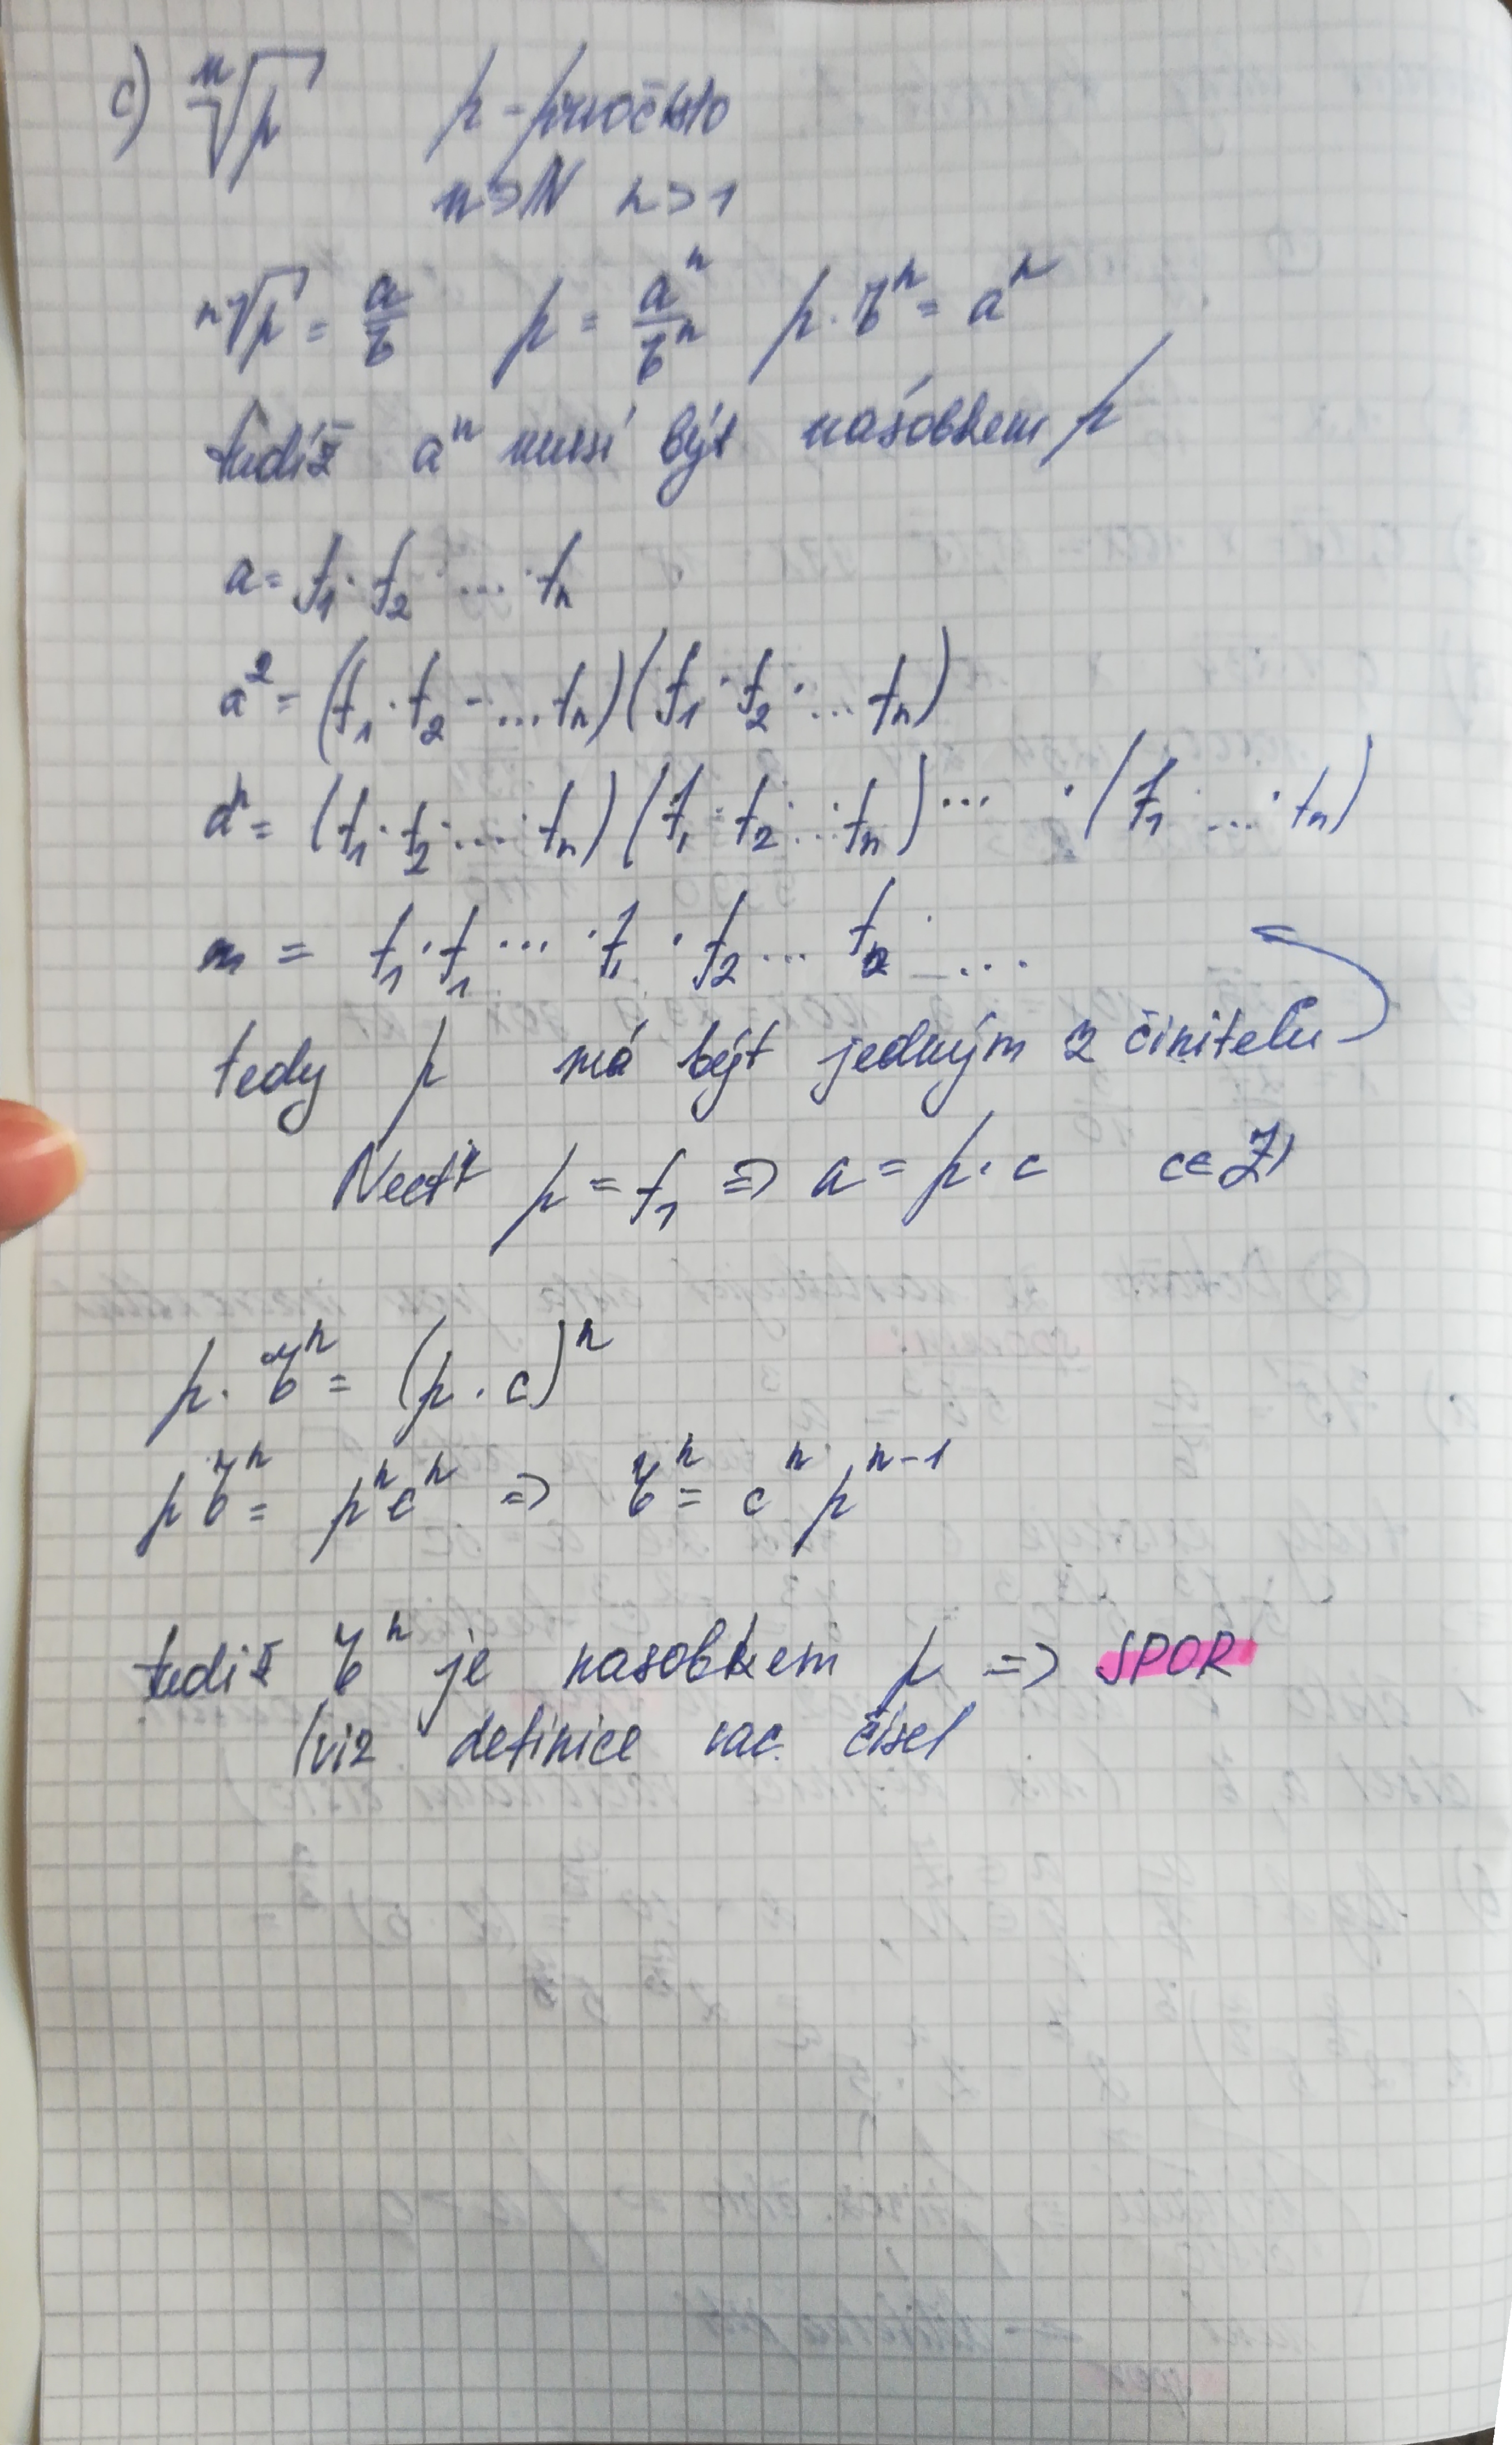 c) ⁿ√p p - prvočíslo
n∋N n>1
ⁿ√p = a/b p = aⁿ/bⁿ p·bⁿ = aⁿ
tudíž aⁿ musí být násobkem p
a = f₁·f₂·...·fₙ
a² = (f₁·f₂·...fₙ)(f₁·f₂·...fₙ)
aⁿ = (f₁·f₂·...·fₙ)(f₁·f₂·...·fₙ)... ·(f₁ ...·fₙ)
m = f₁·f₁ ...·f₁·f₂ ... f₂ ...
tedy p má být jedným z činitelu
Nectť p = f₁ => a = p·c c∈Z
p·bⁿ = (p·c)ⁿ
pbⁿ = pⁿcⁿ => bⁿ = cⁿpⁿ⁻¹
tudiž bⁿ je nasobkem p => SPOR
(viz definice rac. čisel